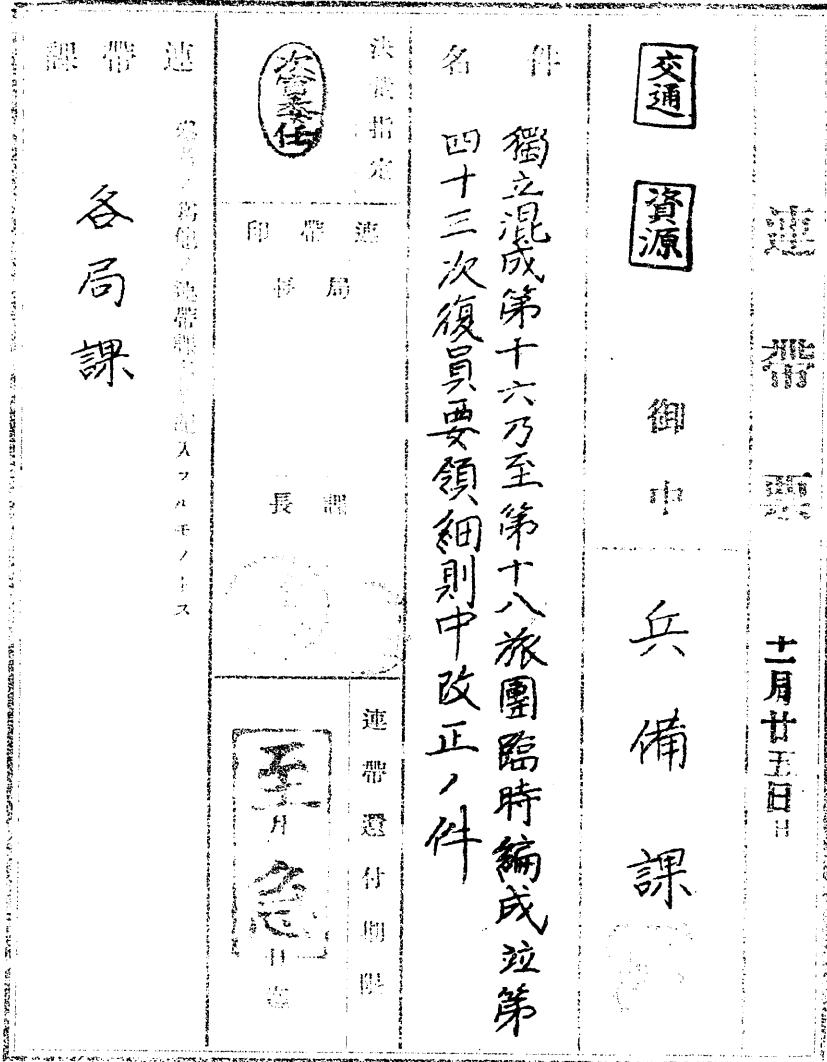 連帶票
十一月廿五日
日
交通
資源
御中
兵備課
件名
獨立混成第十六乃至第十八旅團臨時編成竝第
四十三次復員要領細則中改正ノ件
決裁指定
次官委任
連帶印
局長
課長
連帶還付期限
至急
月
日
連帶課
各局課